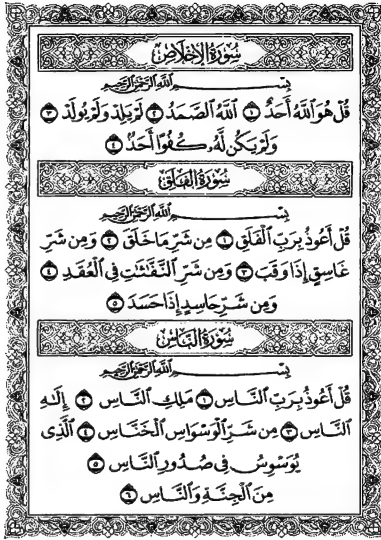 سُورَةُ الإِخْلَاصِ
بِسْمِ اللَّهِ الرَّحْمَٰنِ الرَّحِيمِ
قُلْ هُوَ اللَّهُ أَحَدٌ ١ اللَّهُ الصَّمَدُ ٢ لَمْ يَلِدْ وَلَمْ يُولَدْ ٣
وَلَمْ يَكُن لَّهُ كُفُوًا أَحَدٌ ٤
سُورَةُ الفَلَقِ
بِسْمِ اللَّهِ الرَّحْمَٰنِ الرَّحِيمِ
قُلْ أَعُوذُ بِرَبِّ الْفَلَقِ ١ مِن شَرِّ مَا خَلَقَ ٢ وَمِن شَرِّ
غَاسِقٍ إِذَا وَقَبَ ٣ وَمِن شَرِّ النَّفَّاثَاتِ فِي الْعُقَدِ ٤
وَمِن شَرِّ حَاسِدٍ إِذَا حَسَدَ ٥
سُورَةُ النَّاسِ
بِسْمِ اللَّهِ الرَّحْمَٰنِ الرَّحِيمِ
قُلْ أَعُوذُ بِرَبِّ النَّاسِ ١ مَلِكِ النَّاسِ ٢ إِلَٰهِ
النَّاسِ ٣ مِن شَرِّ الْوَسْوَاسِ الْخَنَّاسِ ٤ الَّذِي
يُوَسْوِسُ فِي صُدُورِ النَّاسِ ٥
مِنَ الْجِنَّةِ وَالنَّاسِ ٦